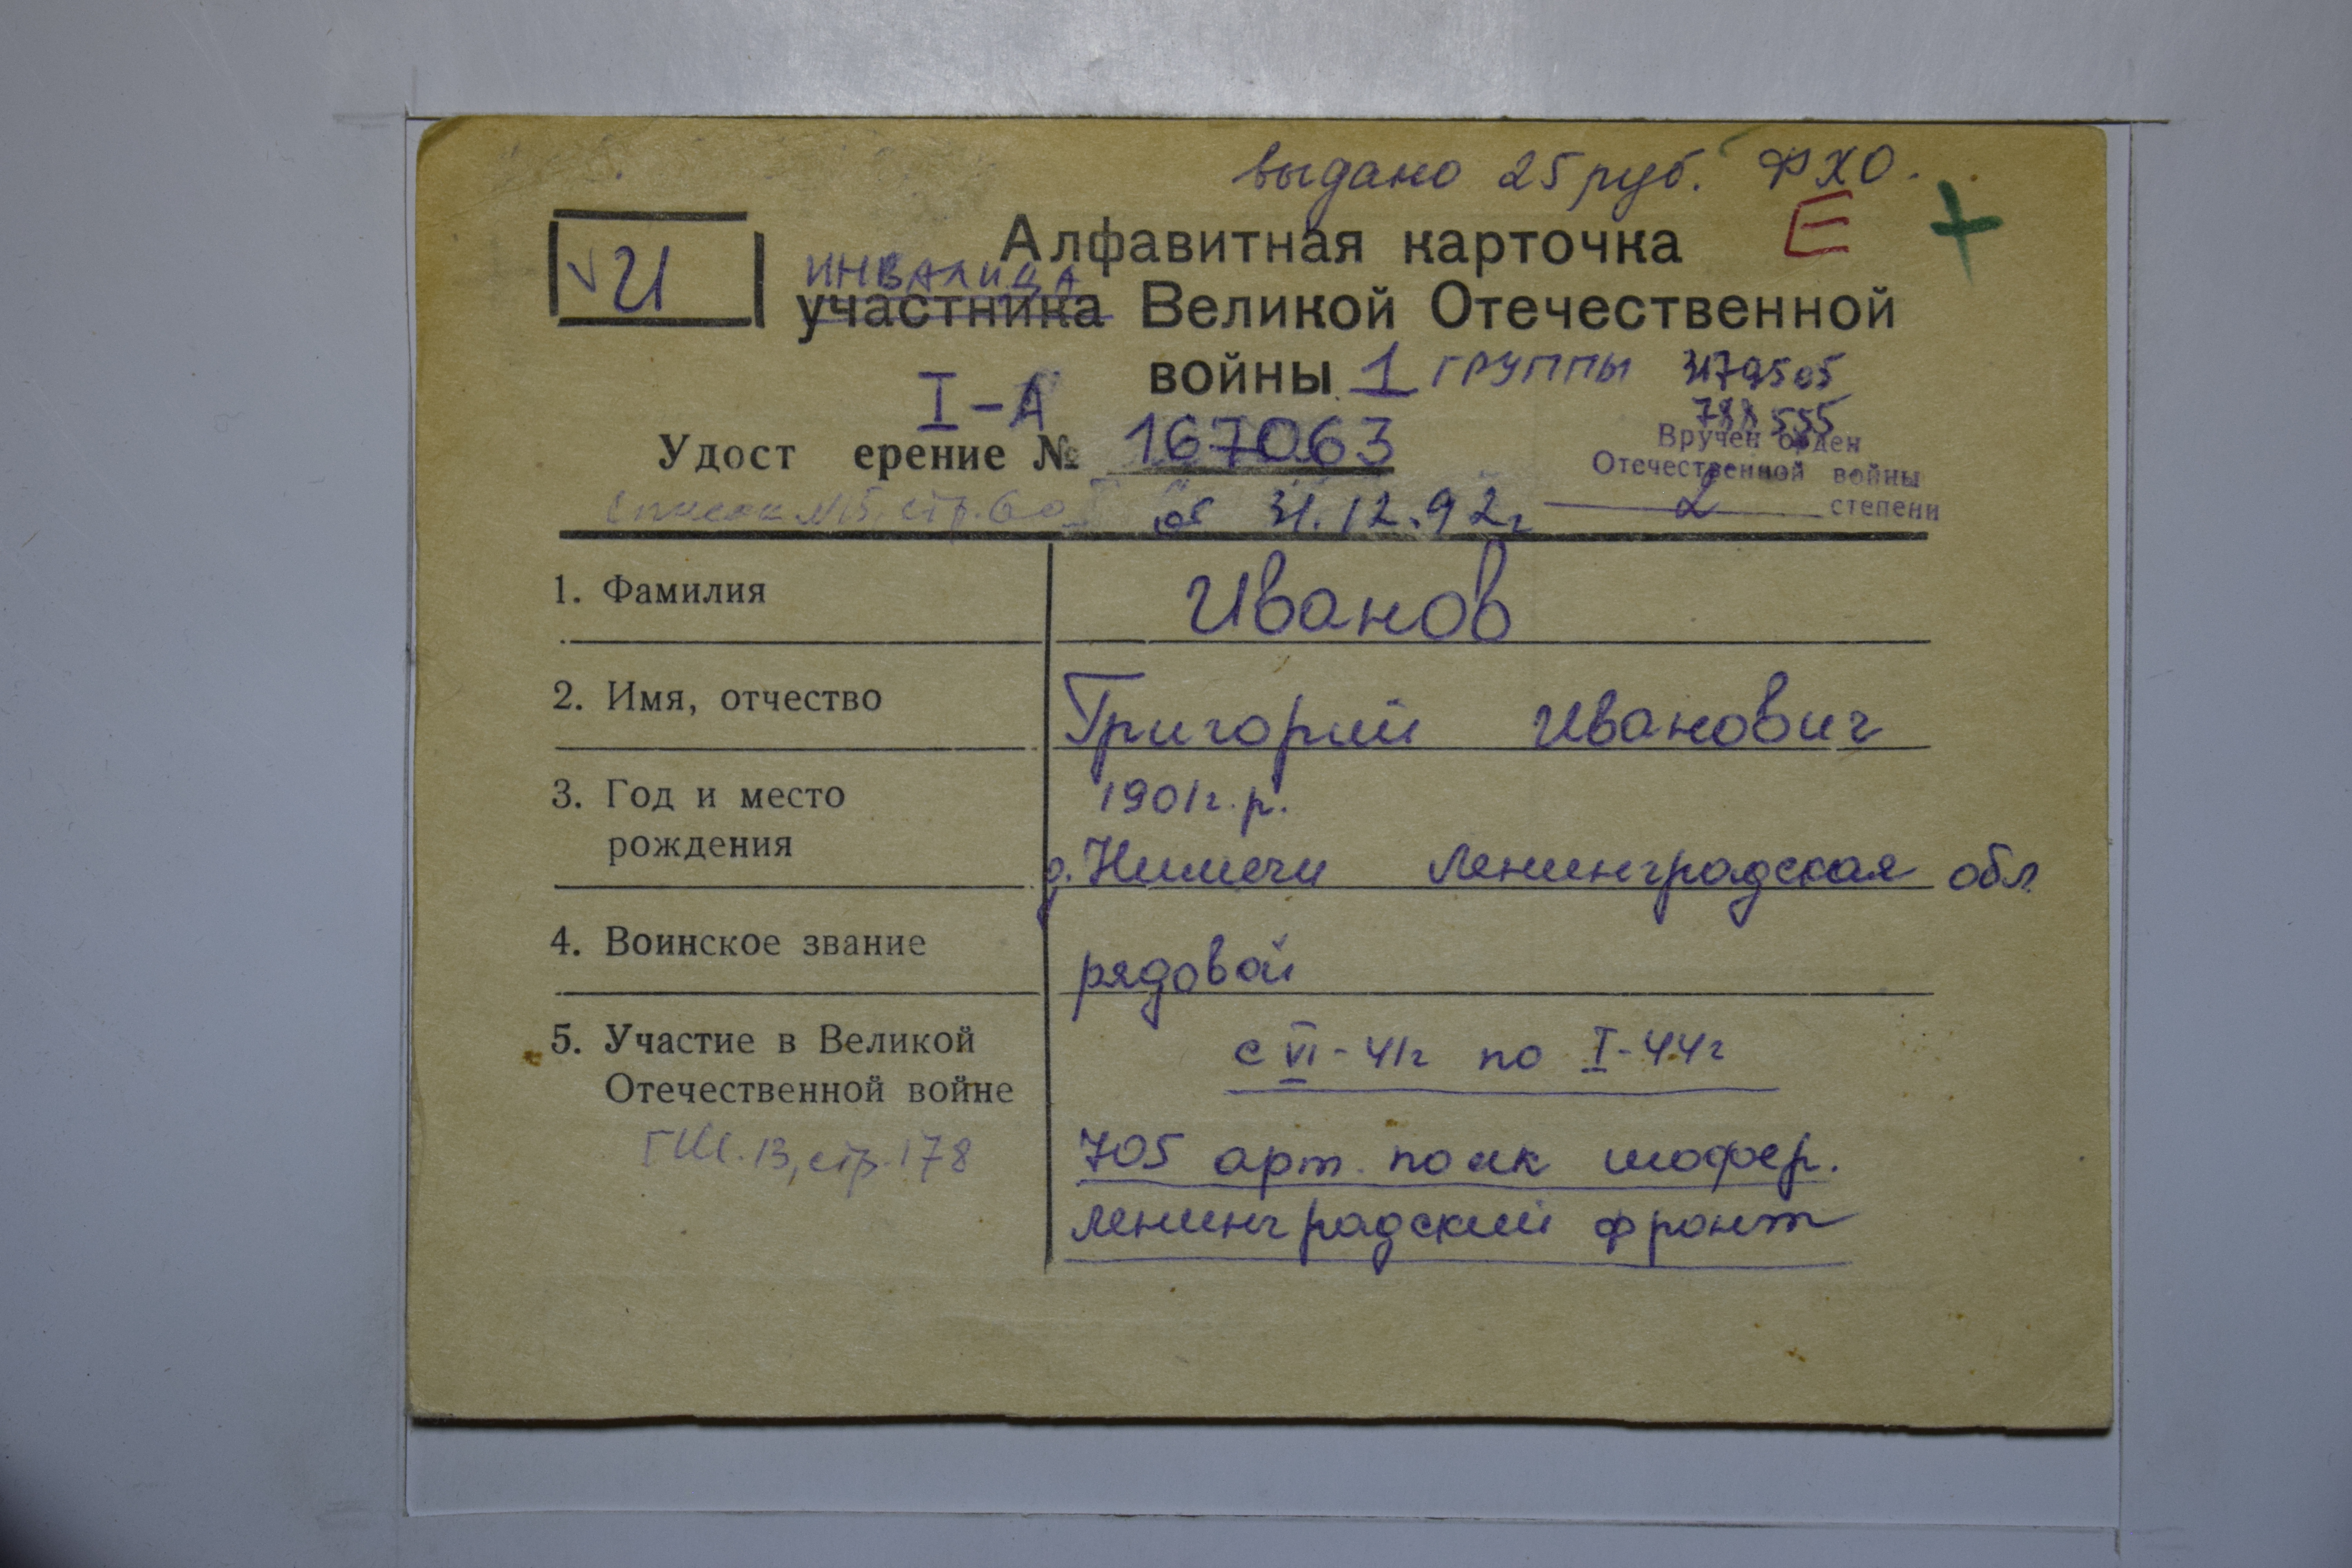 выдано 25 руб. ФХО.
Алфавитная карточка Е +
√ И
инвалида
участника Великой Отечественной
войны 1 группы 3179505
I-А 788555
Удост ерение № 167063
Вручен орден
Отечественной войны
2 степени
Список №5, стр. 60 от 31.12.92г
1. Фамилия Иванов
2. Имя, отчество Григорий Иванович
3. Год и место 1901г.р.
рождения д. Ленинградская обл
4. Воинское звание рядовой
5. Участие в Великой с VI-41г по I-44г
Отечественной войне
ГШ. 13, стр. 178 705 арт. полк шофер.
Ленинградский фронт